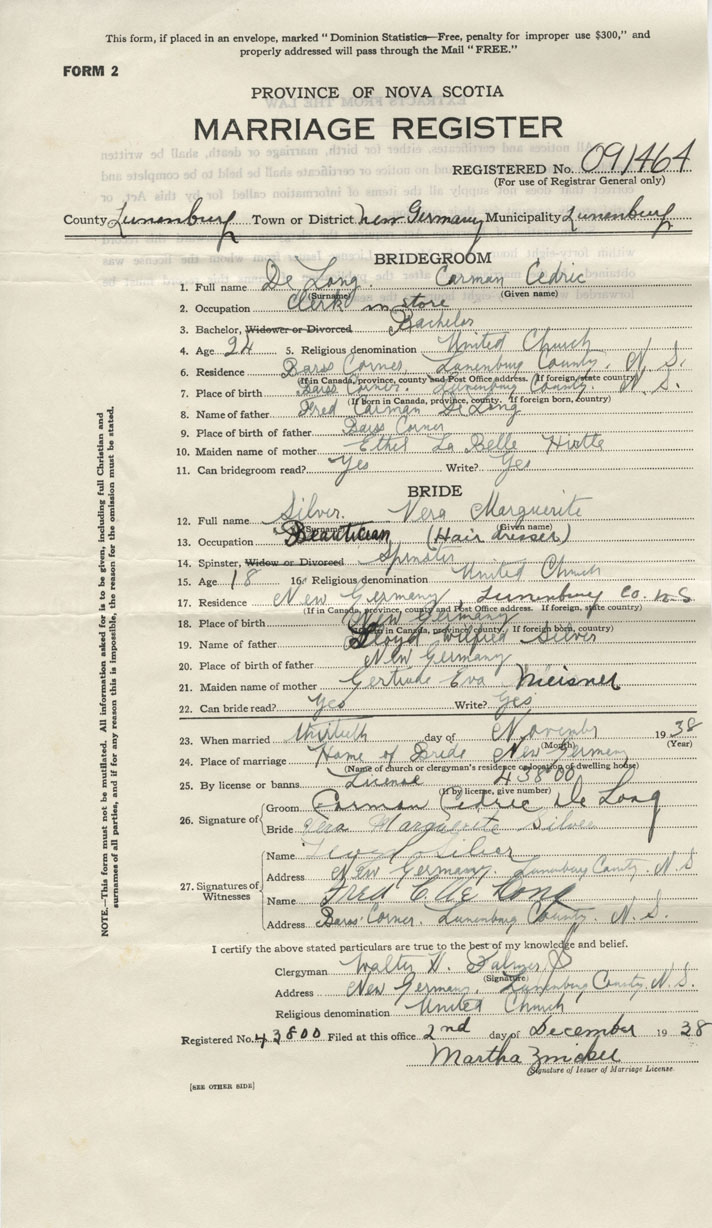 This form, if placed in an envelope, marked "Dominion Statistics—Free, penalty for improper use $300," and
properly addressed will pass through the Mail "FREE."
FORM 2
PROVINCE OF NOVA SCOTIA
MARRIAGE REGISTER
REGISTERED No. 091464
(For use of Registrar General only)
County Lunenburg Town or District New Germany Municipality Lunenburg
BRIDEGROOM
1. Full name De Long. Carman Cedric
(Surname) (Given name)
2. Occupation Clerk in store
3. Bachelor, Widower or Divorced Bachelor
4. Age 24 5. Religious denomination United Church
6. Residence Barss Corner, Lunenburg County, N. S.
(If in Canada, province, county and Post Office address. If foreign, state country)
7. Place of birth Barss Corner, Lunenburg County N. S.
(If born in Canada, province, county. If foreign born, country)
8. Name of father Fred Carman De Long
9. Place of birth of father Barss Corner
10. Maiden name of mother Ethel La Belle
11. Can bridegroom read? Yes Write? Yes
BRIDE
12. Full name Silver. Vera Marguerite
(Surname) (Given name)
13. Occupation Beautician (Hair dresser)
14. Spinster, Widow or Divorced Spinster
15. Age 18 16. Religious denomination United Church
17. Residence New Germany, Lunenburg Co. N S
(If in Canada, province, county and Post Office address. If foreign, state country)
18. Place of birth New Germany
(If born in Canada, province, county. If foreign born, country)
19. Name of father Lloyd Wilfred Silver
20. Place of birth of father New Germany
21. Maiden name of mother Gertrude Eva Meisner
22. Can bride read? Yes Write? Yes
23. When married thirtieth day of November 1938
(Month) (Year)
24. Place of marriage Home of Bride New Germany
(Name of church or clergyman's residence or location of dwelling house)
25. By license or banns License 43800
(If by license, give number)
26. Signature of Groom Carman Cedric De Long
Bride Vera Marguerite Silver
27. Signatures of Witnesses
Name Silver
Address New Germany, Lunenburg County, N. S
Name Fred C. De Long
Address Barss Corner, Lunenburg County, N. S.
I certify the above stated particulars are true to the best of my knowledge and belief.
Clergyman Walter H.
(Signature)
Address New Germany, Lunenburg County, N. S.
Religious denomination United Church
Registered No. 43800 Filed at this office 2nd day of December 1938
Martha Zwicker
Signature of Issuer of Marriage License.
[SEE OTHER SIDE]
NOTE.—This form must not be mutilated. All information asked for is to be given, including full Christian and
surnames of all parties, and if for any reason this is impossible, the reason for the omission must be stated.